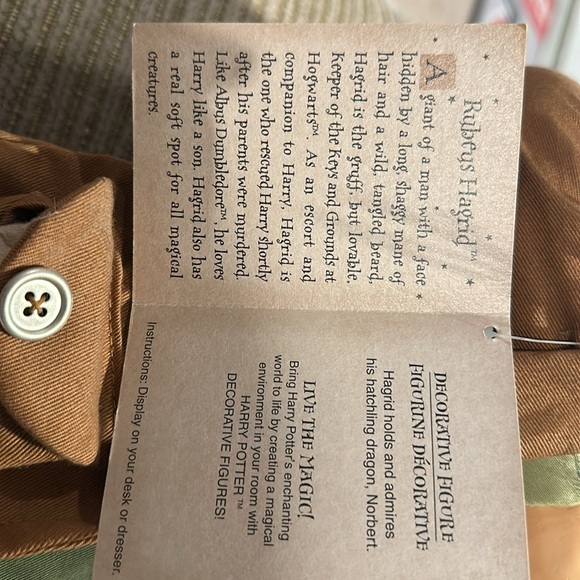 Rubeus Hagrid™
A giant of a man with a face
hidden by a long, shaggy mane of
hair and a wild, tangled beard,
Hagrid is the gruff, but lovable,
Keeper of the Keys and Grounds at
Hogwarts™. As an escort and
companion to Harry, Hagrid is
the one who rescued Harry shortly
after his parents were murdered.
Like Albus Dumbledore™, he loves
Harry like a son. Hagrid also has
a real soft spot for all magical
creatures.
DECORATIVE FIGURE
FIGURINE DÉCORATIVE
Hagrid holds and admires
his hatchling dragon, Norbert.
LIVE THE MAGIC!
Bring Harry Potter's enchanting
world to life by creating a magical
environment in your room with
HARRY POTTER™
DECORATIVE FIGURES!
Instructions: Display on your desk or dresser.